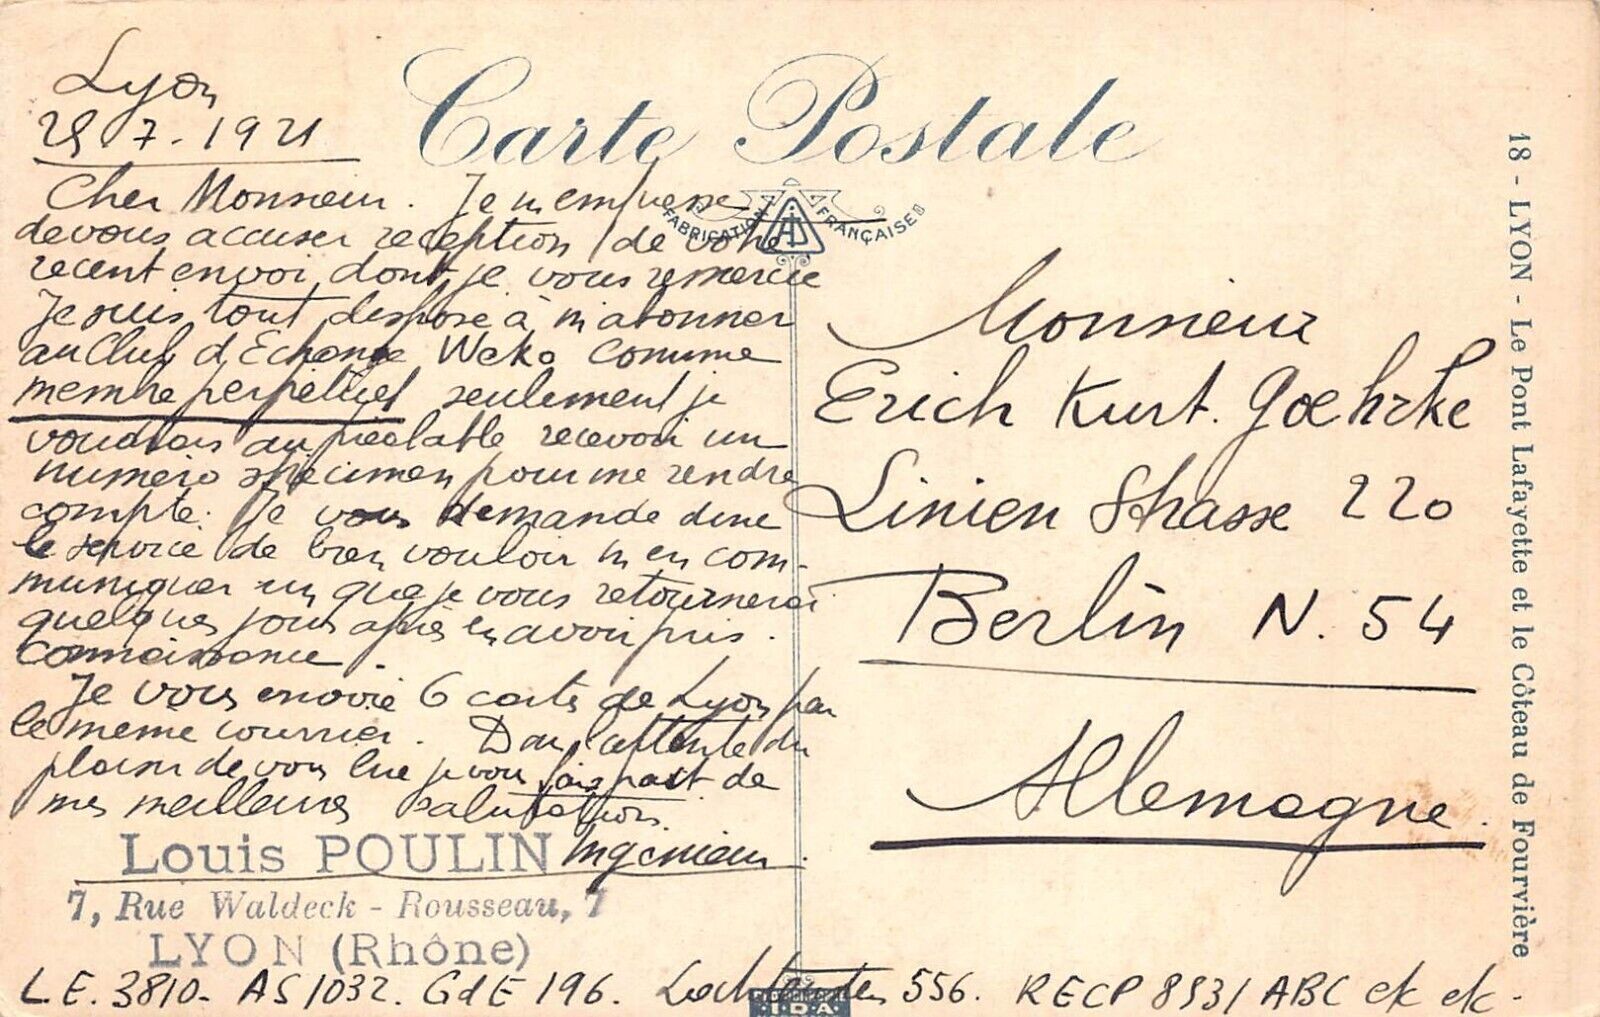 Carte Postale
FABRICATION FRANÇAISE
Lyon
7. 1921
Cher Monsieur. Je m'empresse
de vous accuser reception de votre
recent envoi dont je vous remercie
Je suis tout disposé à m'abonner
au Club d'Echange Weko comme
membre perpétuel seulement je
voudrais au préalable recevoir un
numéro spécimen pour me rendre
compte. Je vous demande donc
le service de bien vouloir m'en com-
muniquer un que je vous retournerai
quelques jours après en avoir pris
connaissance.
Je vous envoie 6 cartes de Lyon par
le même courrier. Dans l'attente du
plaisir de vous lire je vous fais part de
mes meilleures salutations.
Ingénieur
Louis POULIN
7, Rue Waldeck - Rousseau, 7
LYON (Rhône)
L.E. 3810- AS 1032. GdE 196. 556. RECP 8931 ABC etc etc.
Monsieur
Erich Kurt. Goehrke
Linien Strasse 220
Berlin N. 54
Allemagne.
18 - LYON - Le Pont Lafayette et le Côteau de Fourvière